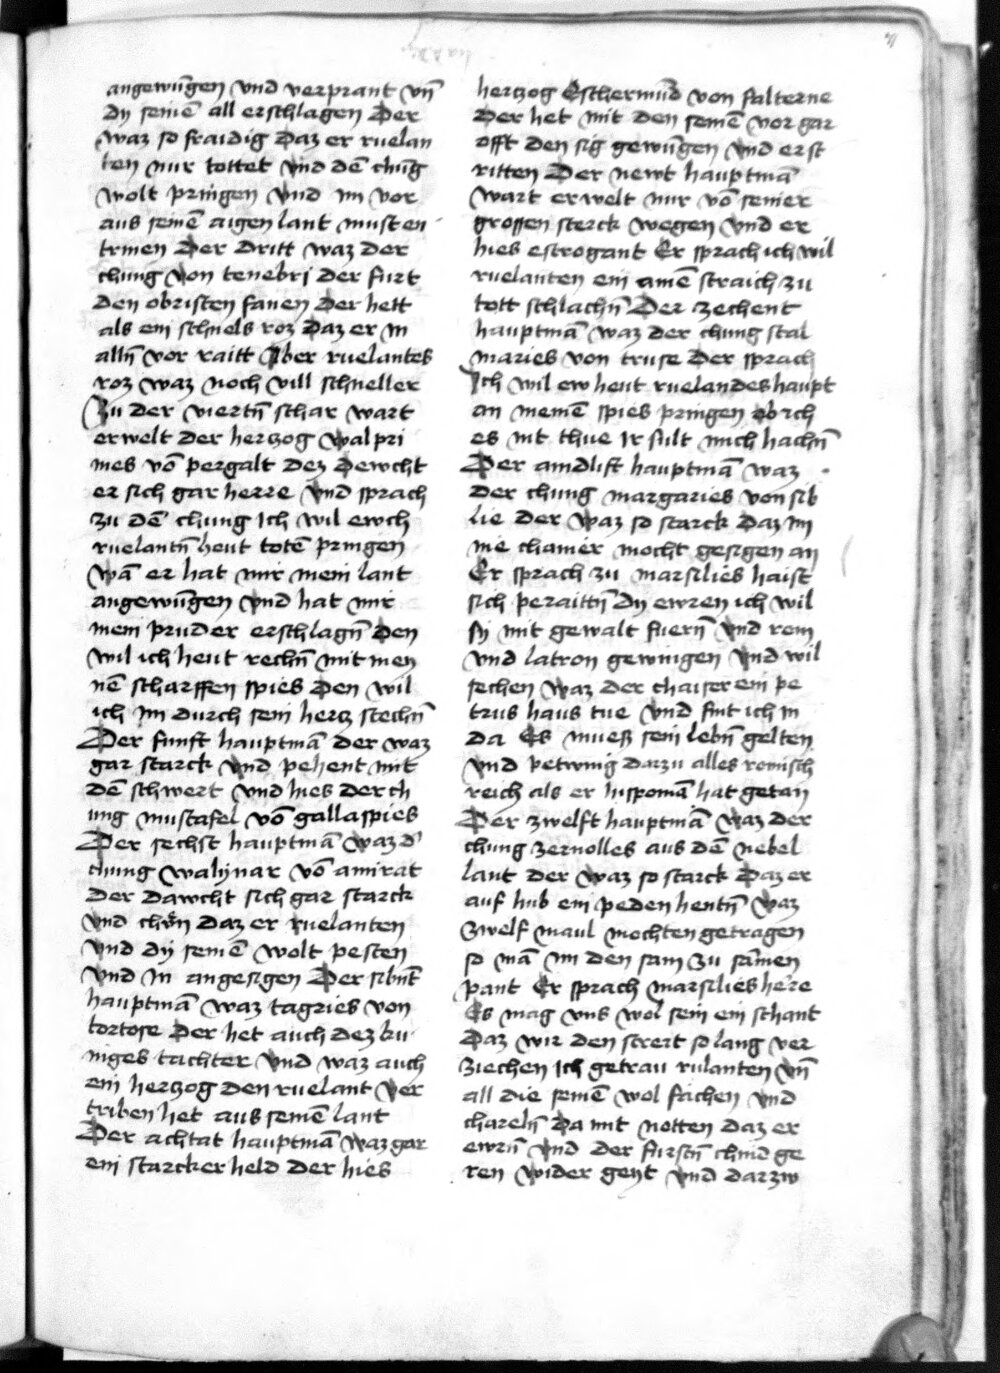 angewūgen vnd verprant vn̄
dy seinē all erschlagen Der
waz so fraidig daz er ruelan
ten nur tottet vnd dē chūg
wolt pringen vnd im vor
aus seinē aigen lant musten
trinen Der dritt waz der
chung von tenebri der furt
den obristen fanen Der hett
als ein schnels roz daz er in
alln̄ vor raitt Aber ruelantes
roz waz noch vill schneller
Zu der viertn̄ schar wart
erwelt der herczog walpri
nies vō pergalt dez dewcht
er sich gar herre vnd sprach
zu dē chung Ich wil ewch
ruelantn̄ hewt totē pringen
wā er hat mir mein lant
angewūgen vnd hat mir
mein pruder erschlagn̄ den
wil ich hewt rechn̄ mit mey
nē scharffen spies Den wil
ich im durch sein hercz stechn̄
Der funft hauptmā der waz
gar starck vnd pehent mit
dē schwert vnd hies der ch
ung mustafel vō gallaspies
Der sechst hauptmā waz d'
chung walynar vō amirat
der dawcht sich gar starck
vnd chön daz er ruelanten
vnd dy seinē wolt pesten
vnd in angesigen Der sibnt̄
hauptmā waz tagries von
tortose Der het auch dez ku
niges tachter vnd waz auch
ein herczog den ruelant ver
triben het aus seinē lant
Der achtat hauptmā waz gar
ein starcker held der hies
herczog Eschermūd von falterne
Der het mit den seinē vor gar
offt den sig gewūgen vnd erst
ritten Der newt hauptmā
wart erwelt nur vō seiner
grossen sterck wegen vnd er
hies estrogant Er sprach ich wil
ruelanten ein ainē straich zu
tott schlachn̄ Der zechent
hauptmā waz der chung stal
maries von truse Der sprach
Ich wil ew hewt ruelandes haupt
an meinē spies pringen ob ich
es nit thue Ir sult mich hachn̄
Der aindlift hauptmā waz
der chung margaries von sib
lie der waz so starck daz im
nie chainer mocht gesigen an
Er sprach zu marsilies haist
sich peraittn̄ dy ewren ich wil
sy mit gewalt fuern̄ vnd rom
vnd latron gewinigen vnd wil
sechen waz der chaiser ein pe
trus haus tue vnd fint ich in
da Es muess sein lebn̄ gelten
vnd petwing darzu alles romisch
reich als er hispomā hat getan
Der zwelft hauptmā waz der
chung zernolles aus dē nebel
lant der waz so starck Daz er
auf hub ein peden hentn̄ waz
zwelf maul mochten getragen
so mā im den sam zu samen
pant Er sprach marsilies herre
Es mag vns wol sein ein schant
Daz wir den streit so lang ver
ziechen Ich getrau rulanten vn̄
all die seinē wol fachen vnd
chareln̄ da mit notten daz er
ewrn̄ vnd der furstn̄ chind ge
ren wider geyt vnd darzw